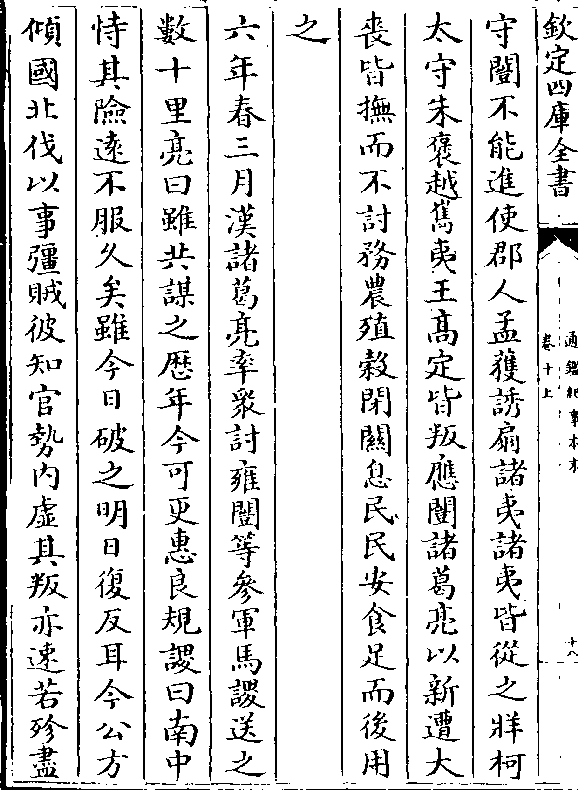 欽定四庫全書
通鑑紀事本末
卷十上
十八
守闓不能進使郡人孟獲誘扇諸夷諸夷皆從之牂柯
太守朱褒越嶲夷王髙定皆叛應闓諸葛亮以新遭大
喪皆撫而不討務農殖榖閉關息民民安食足而後用
之
六年春三月漢諸葛亮率衆討雍闓等參軍馬謖送之
數十里亮曰雖共謀之歴年今可更惠良規謖曰南中
恃其險逺不服久矣雖今日破之明日復反耳今公方
傾國北伐以事彊賊彼知官勢内虛其叛亦速若殄盡